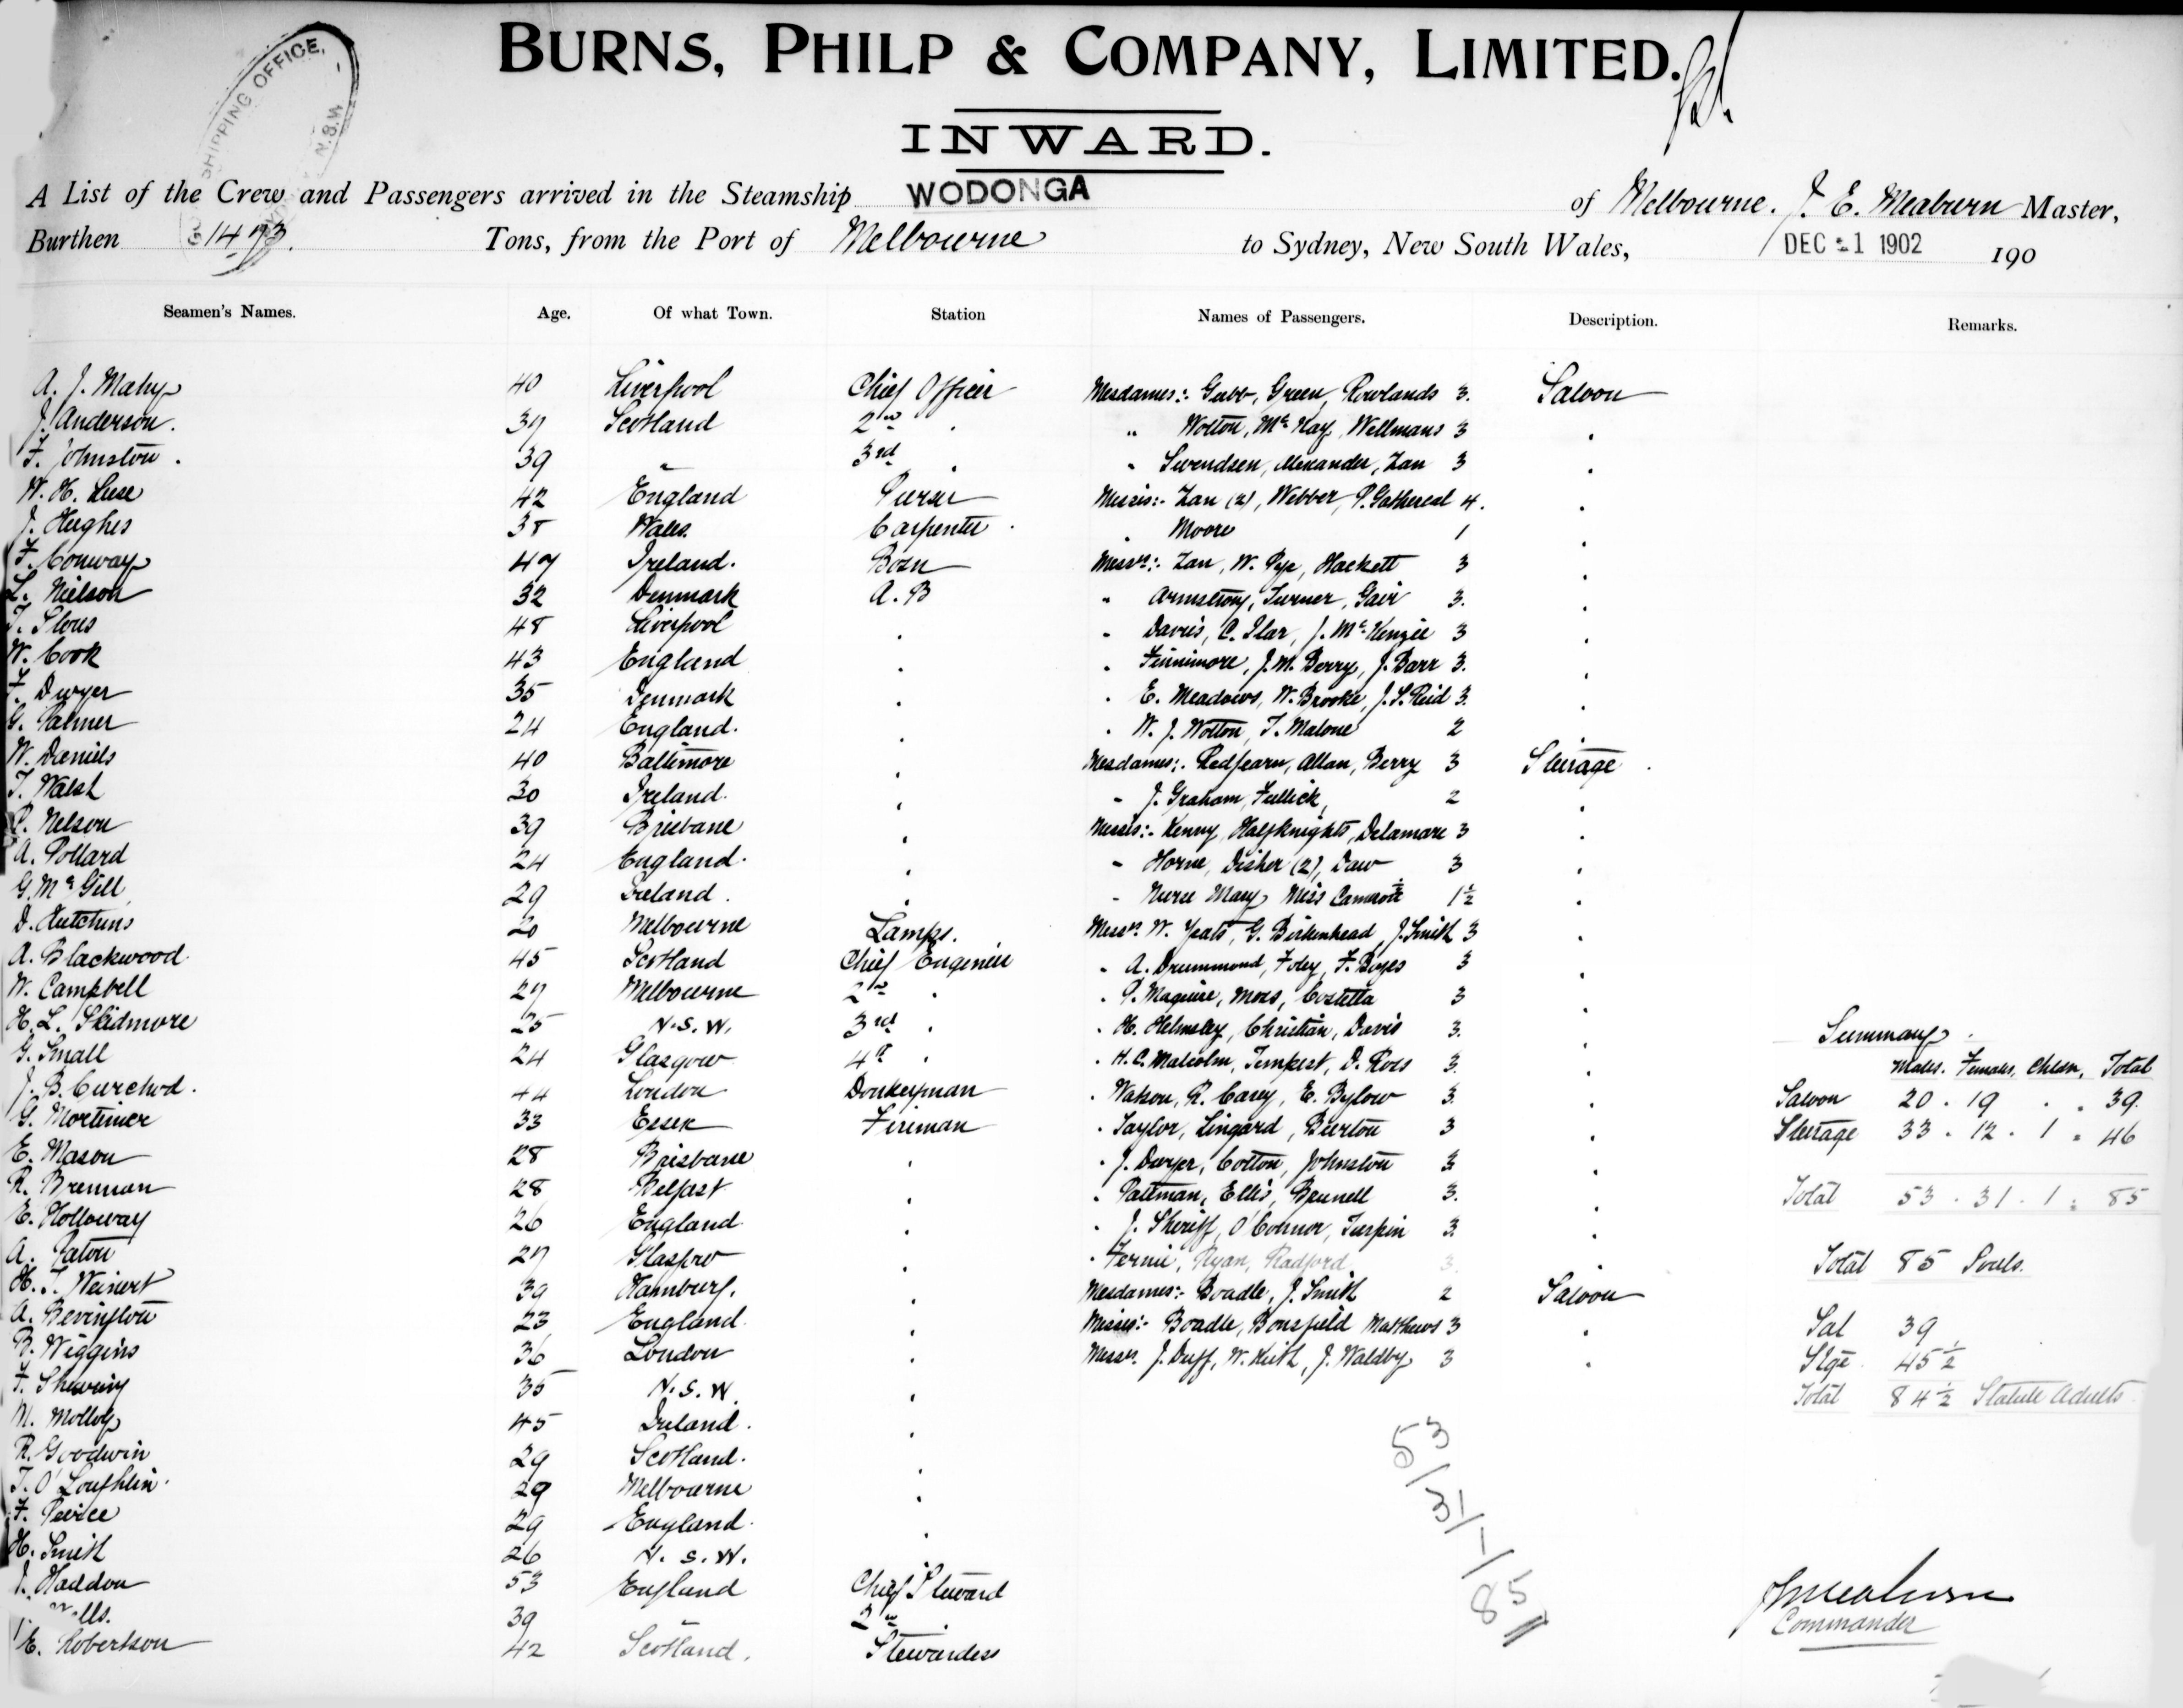 BURNS, PHILP & COMPANY, LIMITED.
INWARD.
SHIPPING OFFICE, N.S.W.
A List of the Crew and Passengers arrived in the Steamship WODONGA of Melbourne. J. E. Meaburn Master,
Burthen 1473. Tons, from the Port of Melbourne to Sydney, New South Wales, DEC 21 1902 190
Seamen's Names. Age. Of what Town. Station Names of Passengers. Description. Remarks.
A. J. Mahy 40 Liverpool Chief Officer Mesdames:- Gubb, Green, Rowlands 3. Saloon
J. Anderson. 37 Scotland 2nd " " Wolton, McKay, Wellmans 3 "
F. Johnston. 39 " 3rd " " Swendsen, Alexander, Zan 3 "
W. H. Luse 42 England Purser Misses:- Zan (2), Webber, P. Gathereal 4. "
J. Hughes 38 Wales. Carpenter. " Moore 1 "
F. Conway 47 Ireland. Bosn Messrs:- Zan, W. Pye, Hackett 3 "
L. Nielson 32 Denmark A.B " Armstrong, Turner, Gair 3. "
T. 48 Liverpool " " Davis, C. Ilar, J. McKenzie 3 "
W. Cook 43 England " " Finnimore, J. M. Berry, J. Barr 3. "
F. Dwyer 35 Denmark " " E. Meadows, W. Brooke, J. S. Reid 3. "
G. Palmer 24 England. " " W. J. Wolton, T. Malone 2 "
W. Daniels 40 Baltimore " Mesdames:- Redfearn, Allan, Berry 3 Steerage.
T. Walsh 30 Ireland. " " J. Graham, Fullick, 2 "
P. Nelson 39 Brisbane " Misses:- Kenny, Halfknights, Delamare 3 "
A. Pollard 24 England. " " Horne, Disher (2), Daw 3 "
G. McGill 29 Ireland. " " Nurse Mary, Miss Cameron ½ 1½ "
D. Hutchins 20 Melbourne Lamps. Messrs. W. Yeats, G. Birkenhead, J. Smith 3 "
A. Blackwood. 45 Scotland Chief Engineer " A. Drummond, Foley, F. Boyes 3 "
W. Campbell 27 Melbourne 2nd " " P. Maguire, Moss, Costella 3 "
H. L. Skidmore 25 N.S.W. 3rd " " H. Helmsley, Christian, Davis 3. "
G. Small 24 Glasgow 4th " " H. C. Malcolm, Tempest, D. Ross 3. "
J. B. Curchod. 44 London Donkeyman " Watson, R. Carey, E. Bylow 3. "
G. Mortimer 33 Essex Fireman " Taylor, Lingard, Beerton 3 "
E. Mason 28 Brisbane " " J. Dwyer, Cotton, Johnston 3 "
R. Brennan 28 Belfast " " Pattman, Ellis, Brunell 3. "
E. Holloway 26 England " " J. Sheriff, O'Connor, Turpin 3. "
A. Paton 27 Glasgow " " Fernie, Ryan, Radford 3. "
H. T. Weinert 39 Hamburg. " Mesdames:- Boadle, J. Smith 2 Saloon
A. Bevington 23 England. " Misses:- Boadle, Bousfield Matthews 3 "
B. Wiggins 36 London " Messrs. J. Duff, W. Keith, J. Waldby 3 "
F. Shewing 35 N.S.W. "
M. Molloy 45 Ireland. "
R. Goodwin 29 Scotland.
T. O'Loughlin. 29 Melbourne "
F. Peirce 29 England. "
H. Smith 26 N.S.W. "
J. Haddon 53 England Chief Steward
lls. 39 " 2nd "
E. Robertson 42 Scotland. Stewardess
Summary.
Males. Females, Chldn, Total
Saloon 20 . 19 . . 39.
Steerage 33 . 12 . 1 = 46
Total 53 . 31 . 1 = 85
Total 85 Souls.
Sal 39
Stge. 45½
Total 84½ Statute Adults
53/31/1/85
J. Meaburn
Commander